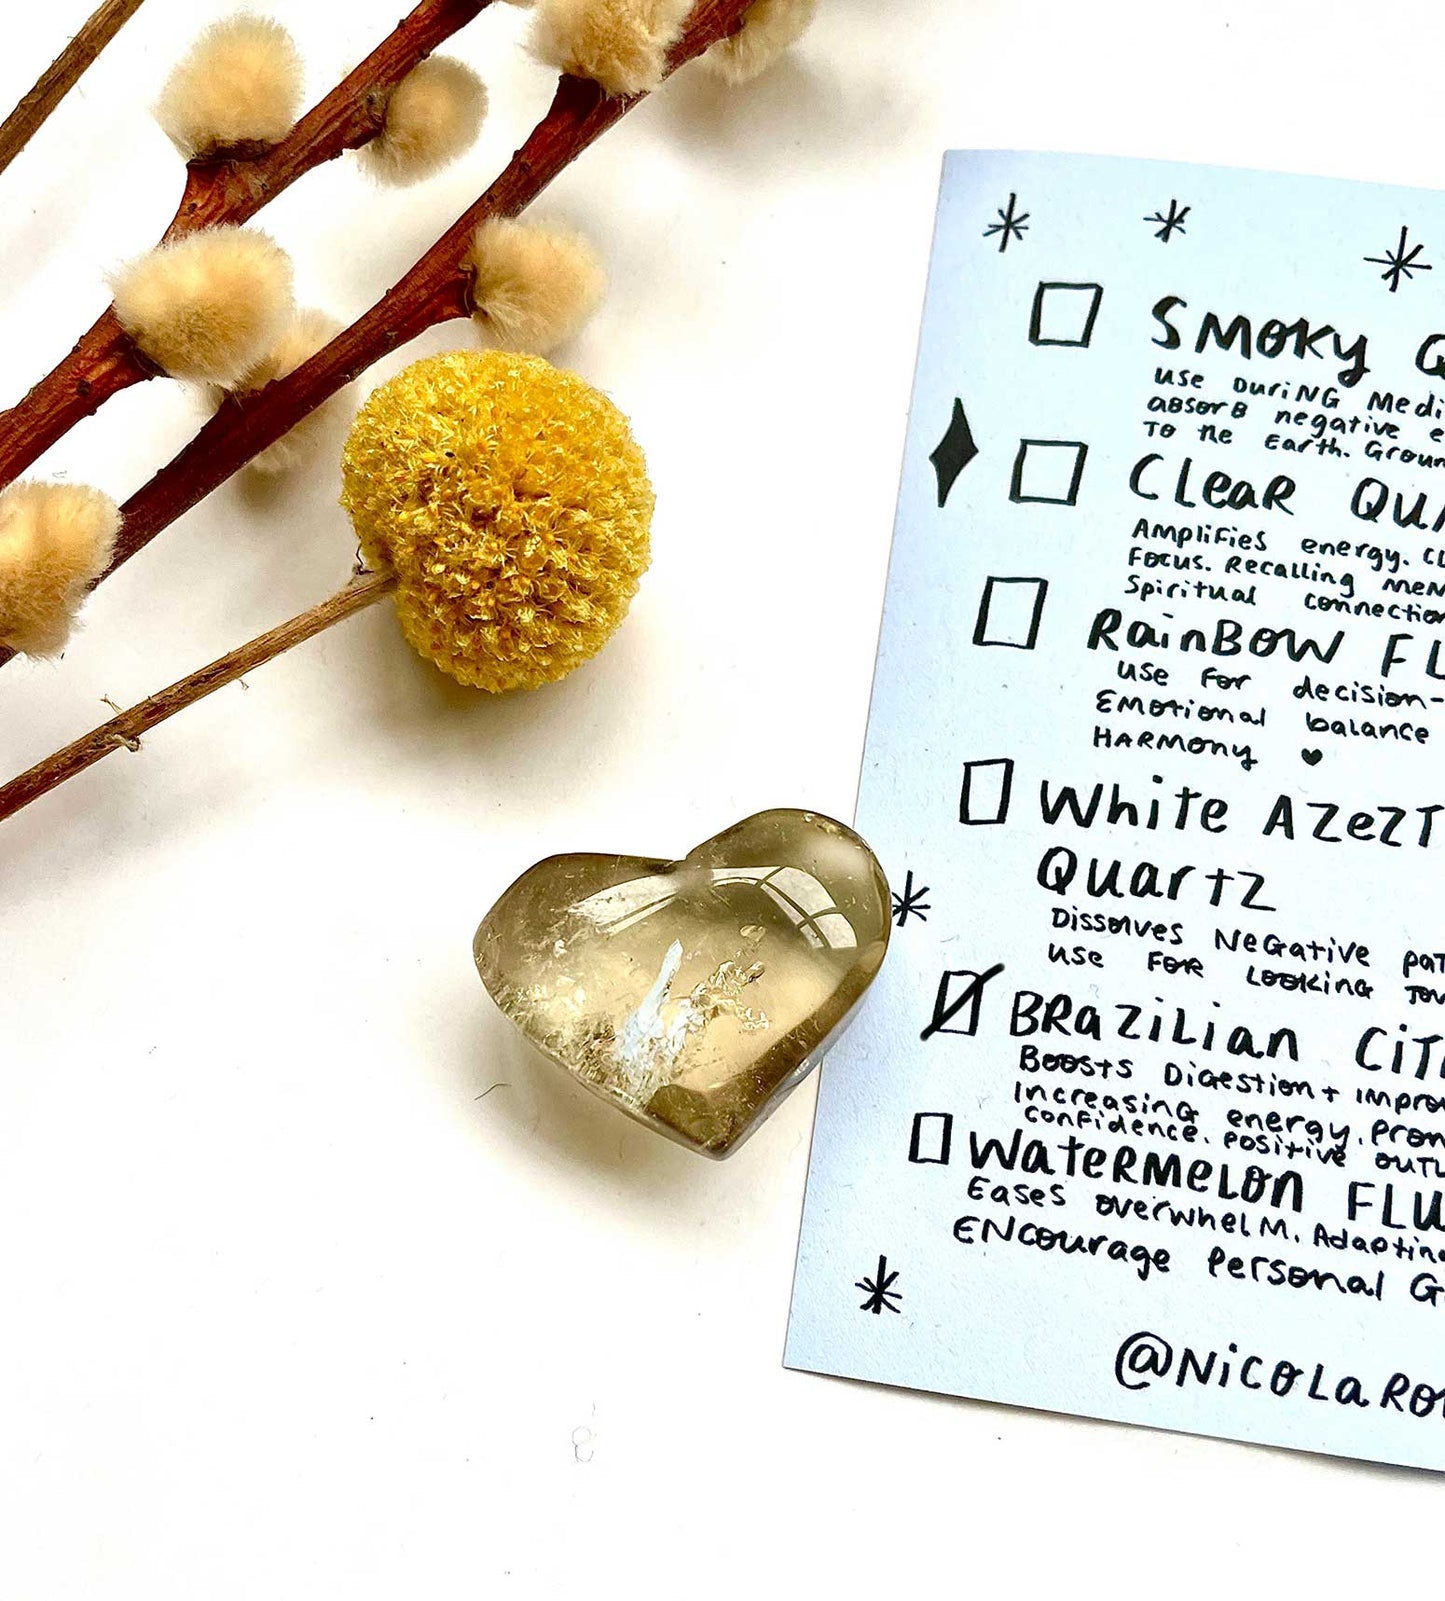 SMOKY Q
USE DURING Medi
ABSORB negative e
TO THE EARTH. Groun
CLEAR QUA
AMPLIFIES energy. CL
FOCUS. Recalling MEM
Spiritual connection
RAINBOW FL
USE FOR decision-
EMOTIONAL balance
HARMONY ♥
White AZEZT
QUARTZ
Dissolves NEGATIVE PAT
USE FOR LOOKING TOW
BRAZILIAN CIT
Boosts DIGESTION + IMPRO
Increasing energy. PROM
confidence. Positive OUTL
WATERMELON FLU
Eases overwhelm. Adapting
ENCOURAGE Personal G
@NICOLARO